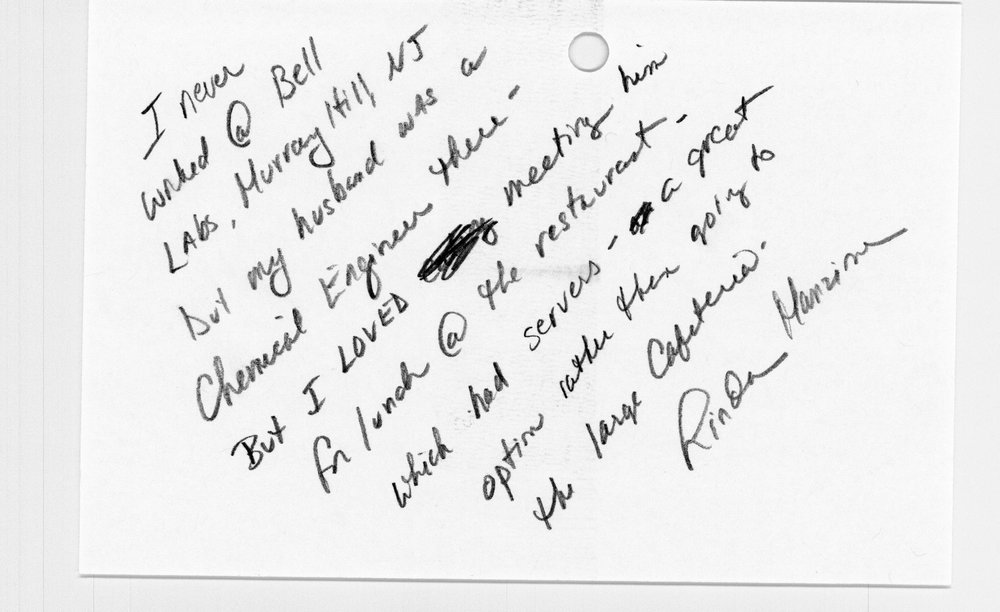 I never
worked @ Bell
LAbs, Murray Hill, NJ
but my husband was a
Chemical Engineer there -
But I LOVED meeting him
for lunch @ the restaurant -
which had servers - a great
option rather than going to
the large Cafeteria.